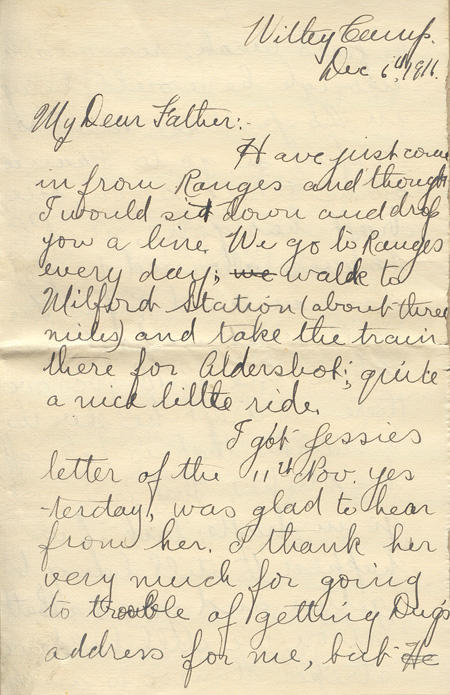 Witley Camp.
Dec 6th, 1916.
My Dear Father:-
Have just come
in from Ranges and thought
I would sit down and drop
you a line. We go to Ranges
every day; we walk to
Milford Station (about three
miles) and take the train
there for Aldershot; quite
a nice little ride.
I got Jessies
letter of the 11th Nov. yes
-terday, was glad to hear
from her. I thank her
very much for going
to trouble of getting Dug's
address for me, but He